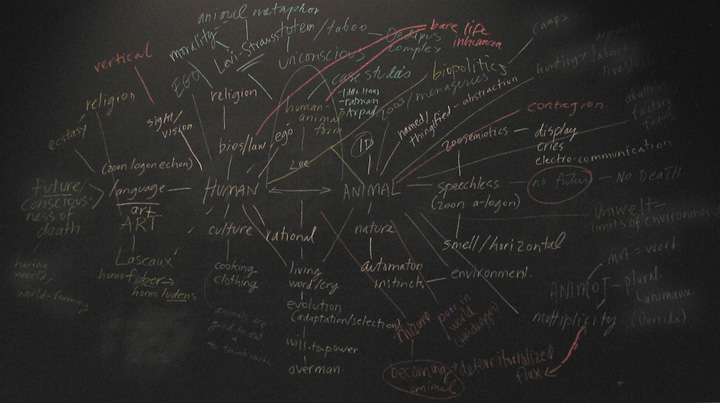 animal metaphor
morality
Levi-Strauss
totem/taboo
Oedipus
complex
unconscious
bare life
inhuman
camps
vertical
EGO
religion
case studies
biopolitics
zoo/menageries
hunting
religion
ecstasy
sight/
vision
human-
animal
farm
named/
thingified-abstraction
contagion
bios/law
ego
ID
zoosemiotics
display
cries
electro-communication
Zoe
(zoon logon echon)
language
HUMAN
ANIMAL
speechless
(zoon a-logon)
no future
NO DEATH
future/
conscious-
ness of
death
art
ART
culture
rational
nature
smell/horizontal
Umwelt=
limits of environment
Lascaux
homo faber
homo ludens
having
world,
world-forming
cooking
clothing
living
word/cry
automaton
instincts
environment
mot = word
ANIMOT
plural
(animaux
(Derrida)
evolution
(adaptation/selection)
animals are
good to eat
+
to think with
poor in
world
(Heidegger)
multiplicity
will-to-power
overman
becoming
animal
deterritorialized
flux